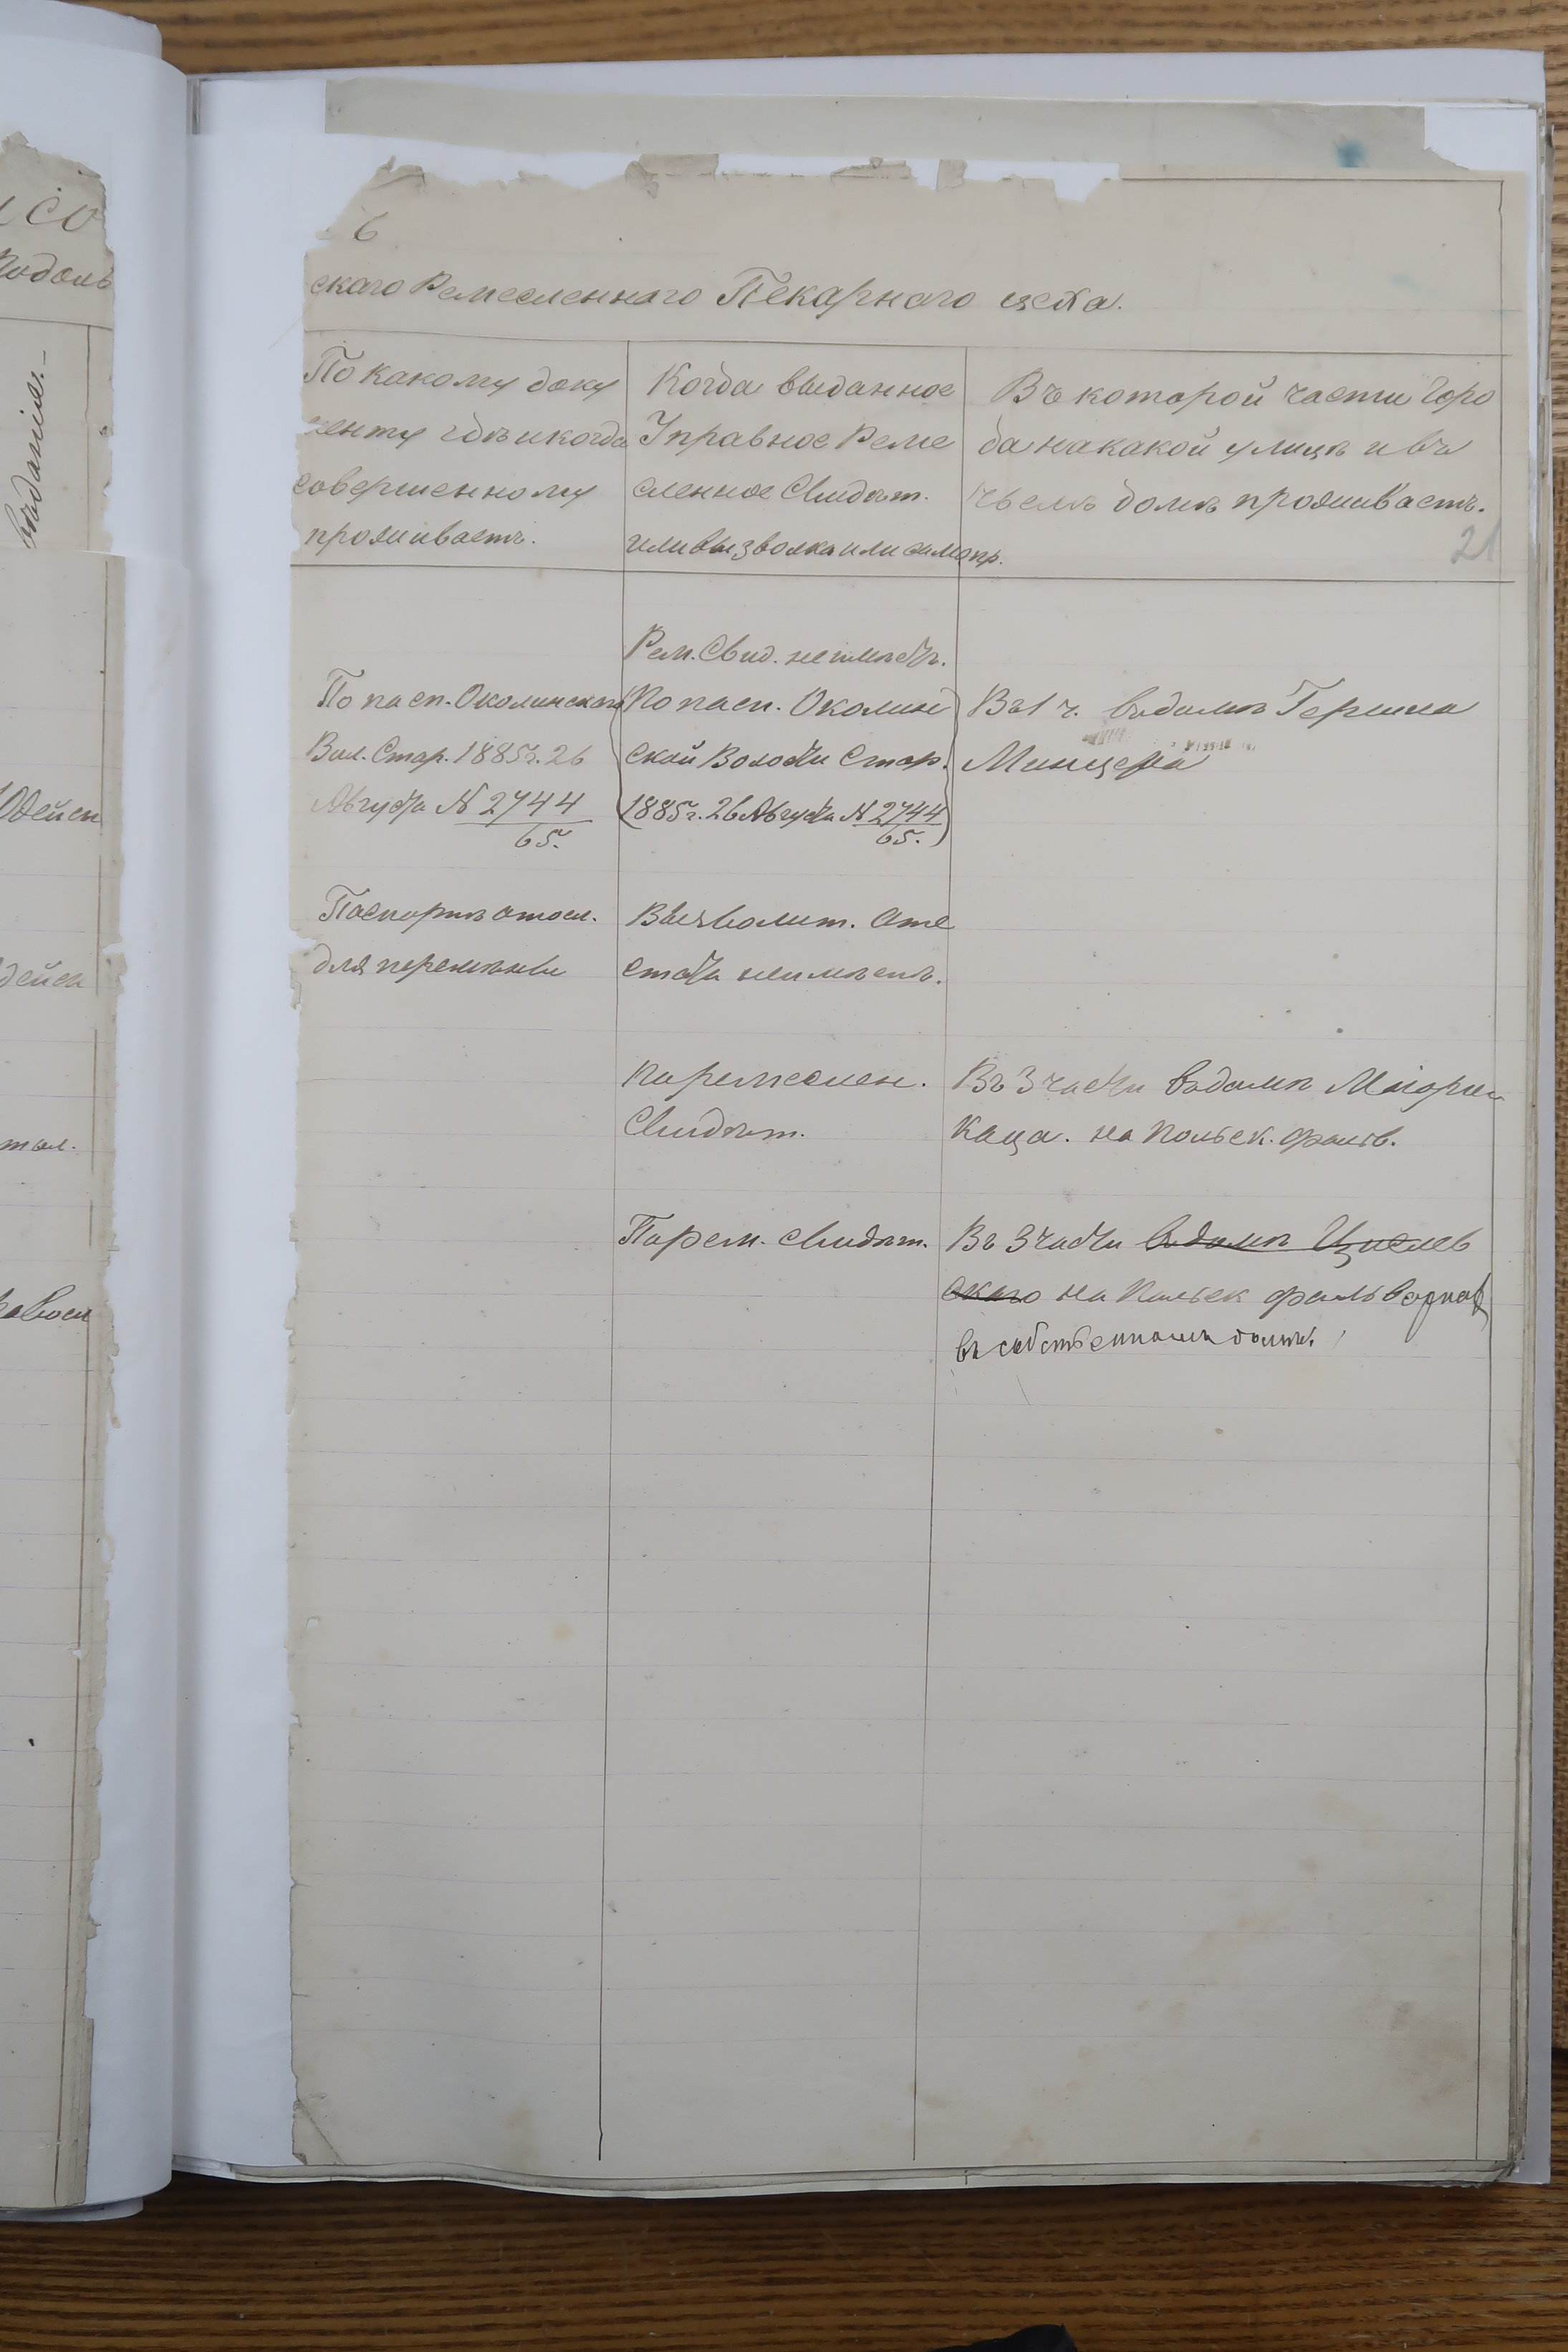 исо
Подоль
вѣданія.-
Одейск
дейск
тол.
6
скаго Ремесленнаго Пекарнаго цеха.
По какому доку
менту гдѣ и когда
совершенному
проживаетъ.
Когда выданное
Управное Реме
сленное Свидѣт.
или вызволка или самопр.
Въ которой части Горо
да на какой улицѣ и въ
чьемъ домѣ проживаетъ.
21
По пасп. Околинскаго
Вол. Стар. 1885 г. 26
Августа № 2744
65.
Рем. Свид. неимѣетъ.
(По пасп. Околин
ской Волости Стар.
1885 г. 26 Августа № 2744
65.)
Въ 1 ч. въ домѣ Гершна
Минцера
Паспортъ отосл.
для перемѣны
Вызволит. Атте
стата неимѣетъ.
По ремеслен.
Свидѣт.
Въ 3 части въ домѣ
Каца. на Польск. фольв.
По рем. Свидѣт.
Въ 3 части въ домѣ Цислев
скаго на Польск фольварках
въ собственномъ домѣ.